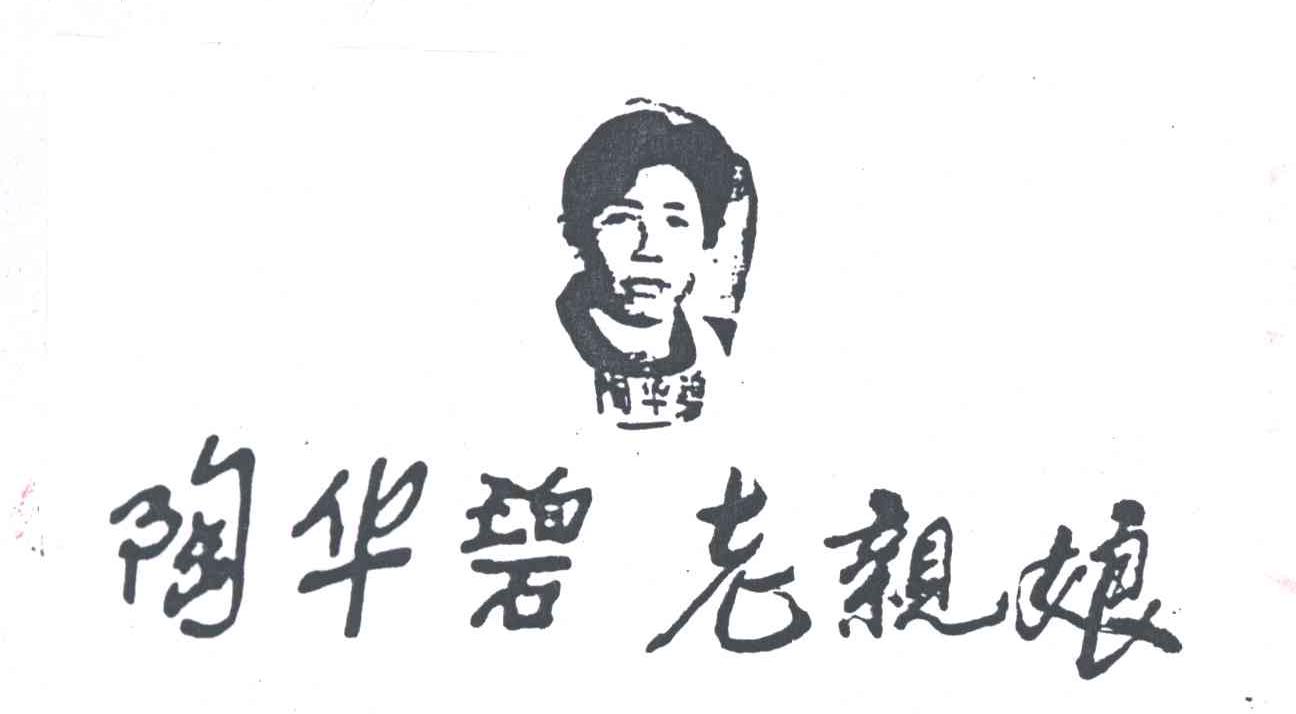 陶华碧
陶华碧 老親娘